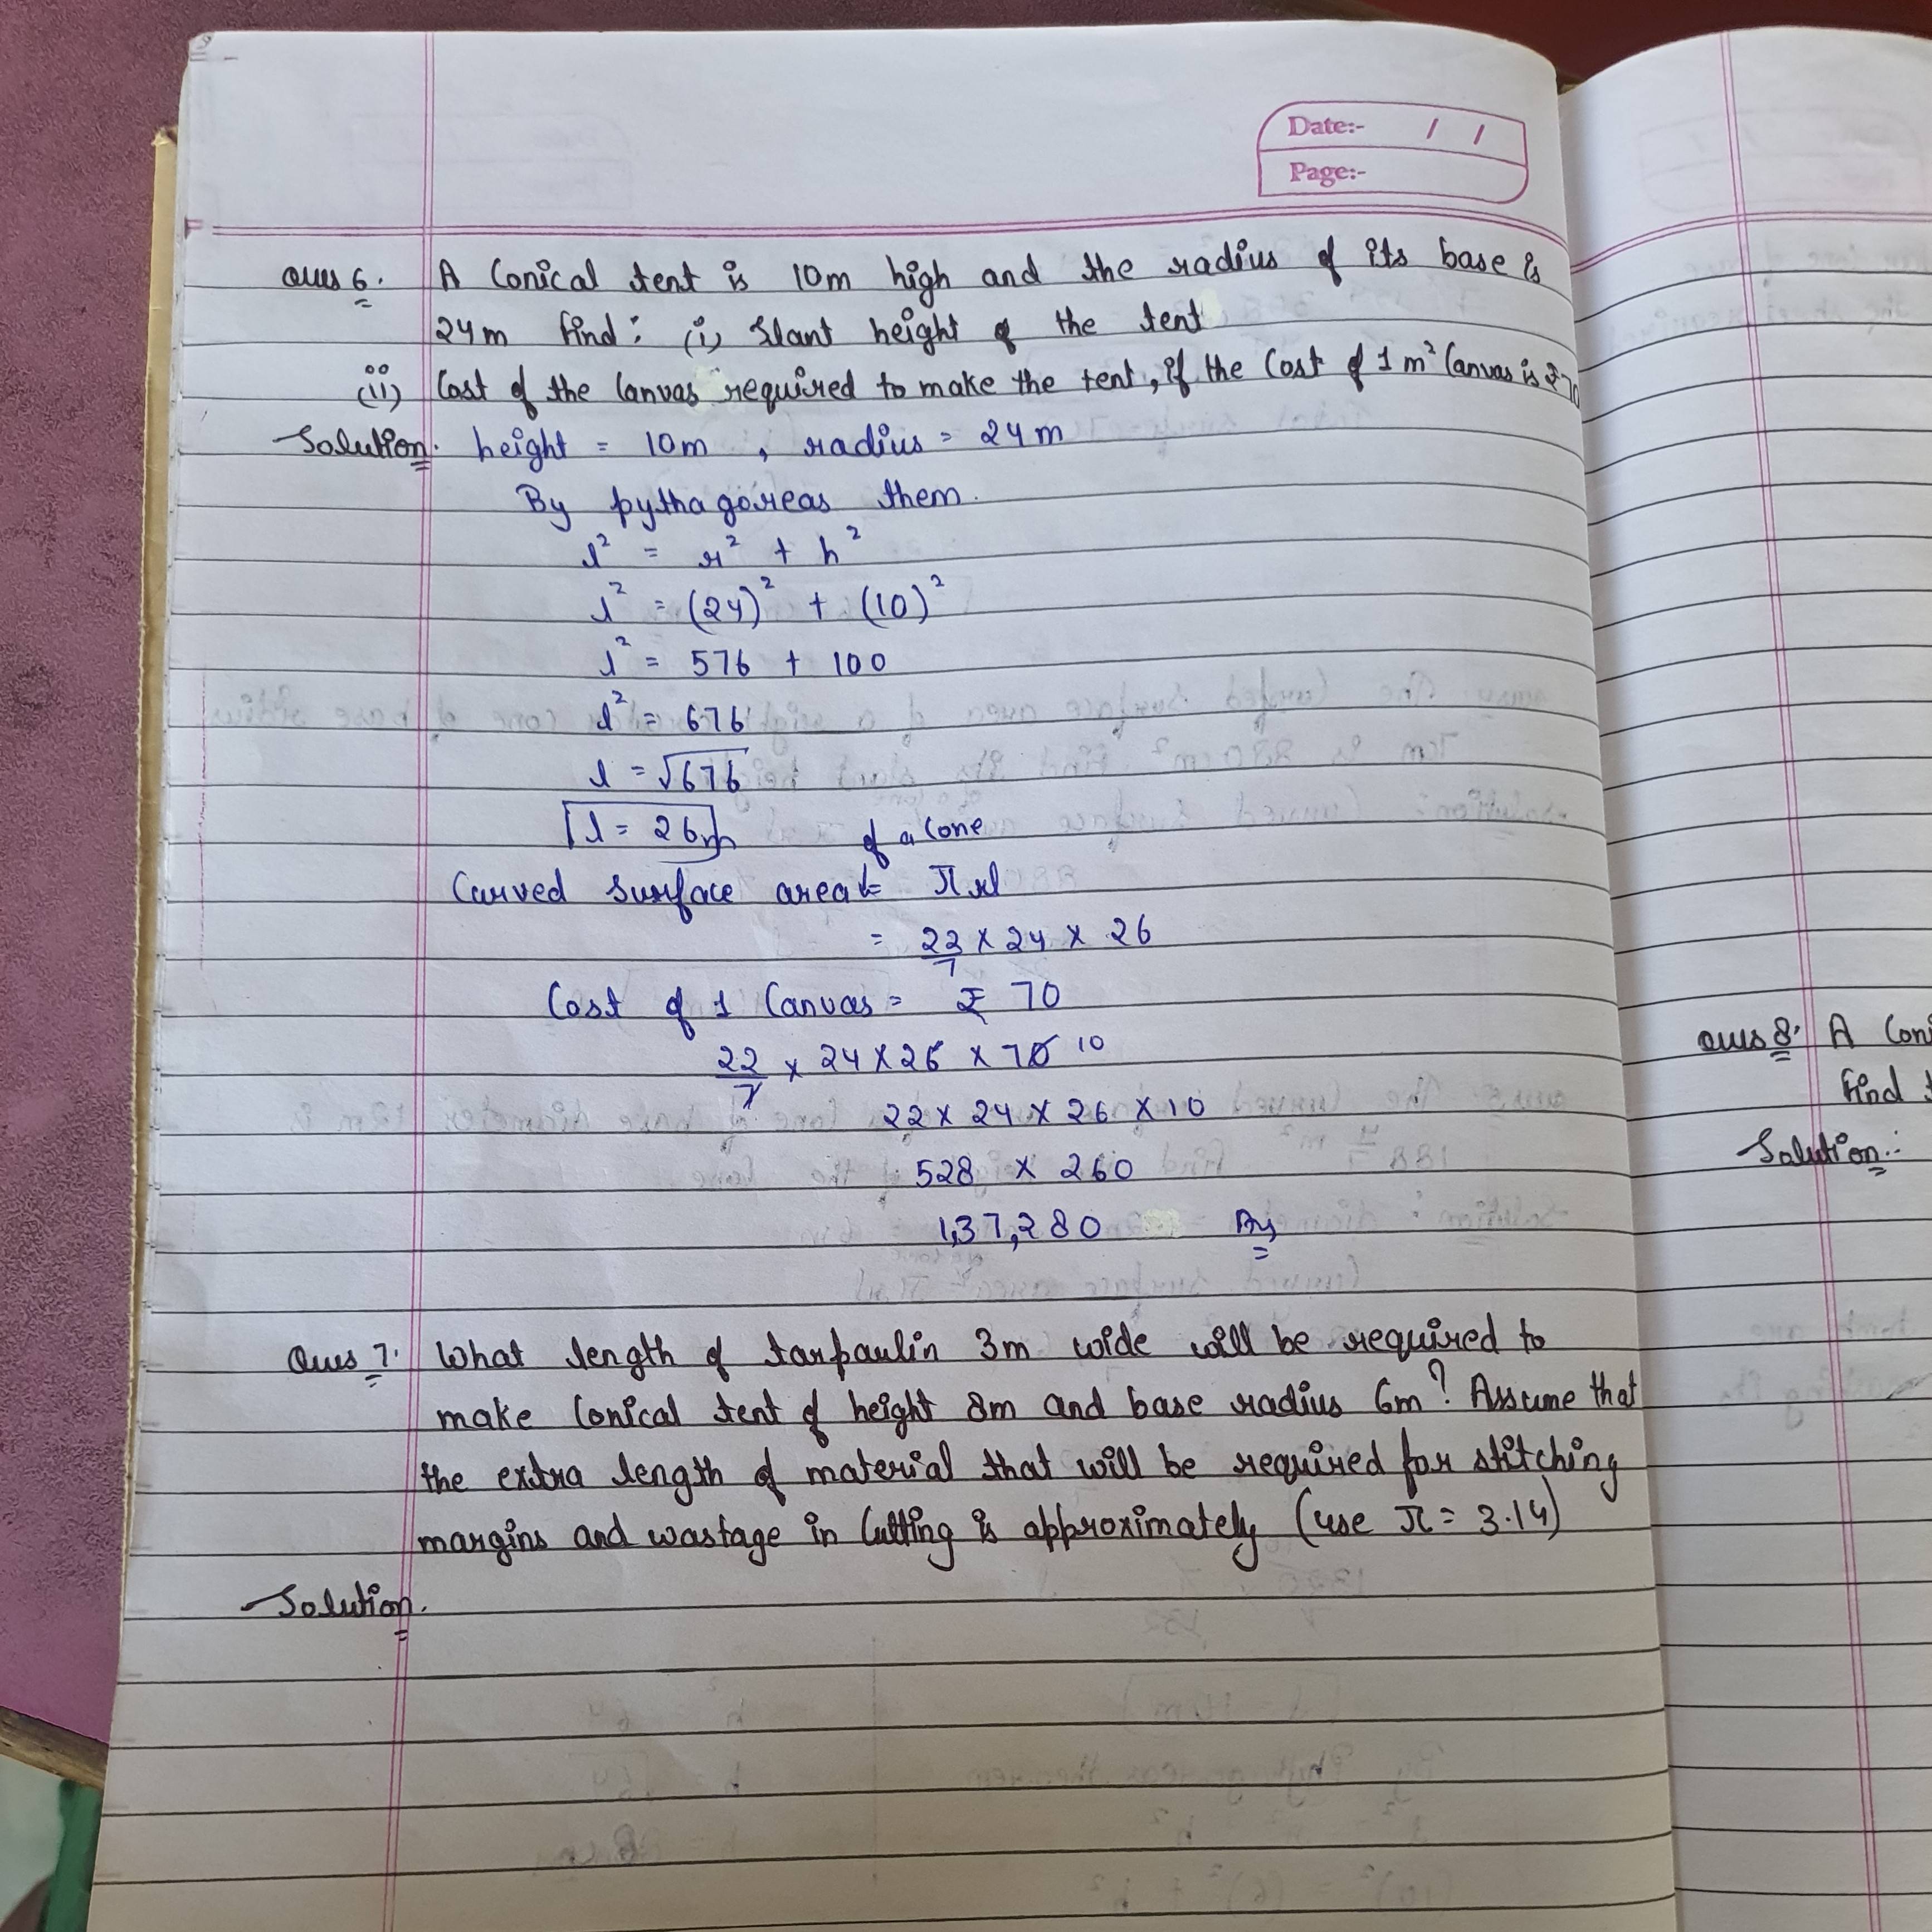 Date:- / /
Page:-
Ques 6. A Conical tent is 10m high and the radius of its base is
24m find: (i) Slant height of the tent
(ii) Cost of the Canvas required to make the tent, if the Cost of 1 m² Canvas is ₹70
Solution. height = 10m , radius = 24m
By pythagoreas them.
l² = r² + h²
l² = (24)² + (10)²
l² = 576 + 100
l² = 676
l = √676
l = 26m
of a Cone
Curved surface area = πrl
= 22/7 × 24 × 26
Cost of 1 Canvas = ₹ 70
22/7 × 24 × 26 × 70 10
22 × 24 × 26 × 10
528 × 260
1,37,280 Ans
Ques 7. What length of tarpaulin 3m wide will be required to
make Conical tent of height 8m and base radius 6m? Assume that
the extra length of material that will be required for stitching
margins and wastage in Cutting is approximately (use π = 3.14)
Solution.
Ques 8. A Coni
find
Solution: